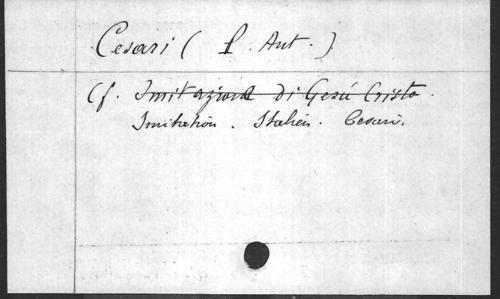 Cesari (P. Ant.)
Cf. Imitazione di Gesú Cristo.
Imitation. Italien. Cesari.